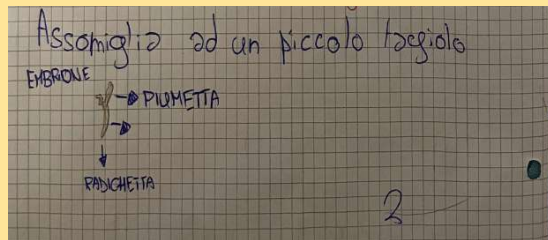 Assomiglia ad un piccolo fagiolo
EMBRIONE
PIUMETTA
RADICHETTA
2